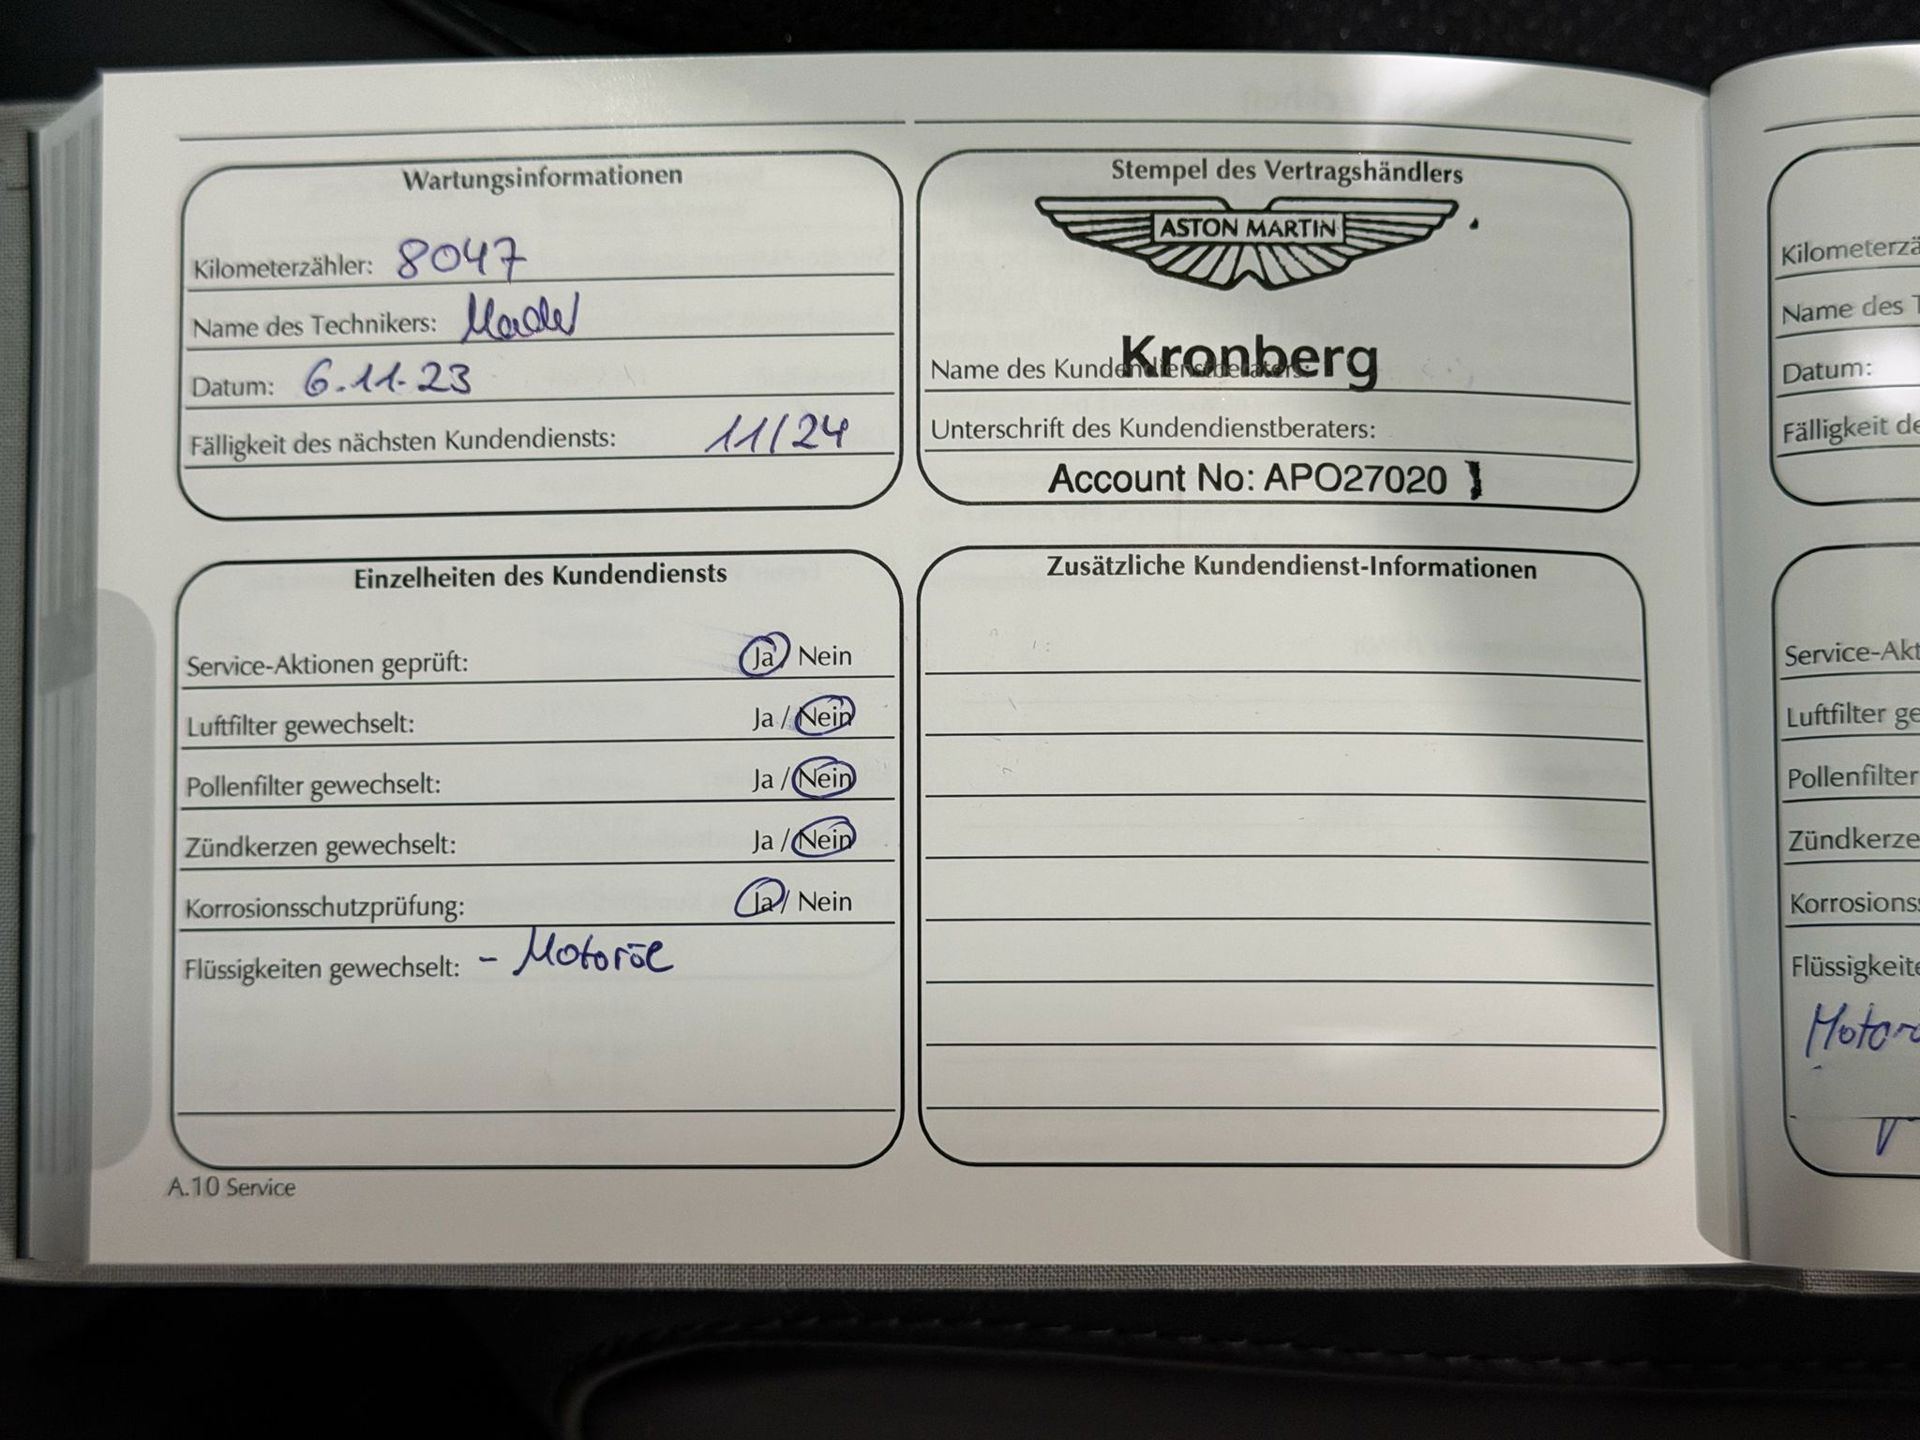 Wartungsinformationen
Kilometerzähler: 8047
Name des Technikers: Madel
Datum: 6.11.23
Fälligkeit des nächsten Kundendiensts: 11/24
Stempel des Vertragshändlers
ASTON MARTIN
Kronberg
Name des Kundendienstberaters:
Unterschrift des Kundendienstberaters:
Account No: APO27020
Einzelheiten des Kundendiensts
Service-Aktionen geprüft: Ja / Nein
Luftfilter gewechselt: Ja / Nein
Pollenfilter gewechselt: Ja / Nein
Zündkerzen gewechselt: Ja / Nein
Korrosionsschutzprüfung: Ja / Nein
Flüssigkeiten gewechselt: - Motoröl
Zusätzliche Kundendienst-Informationen
A.10 Service
Kilometerzä
Name des T
Datum:
Fälligkeit de
Service-Akt
Luftfilter ge
Pollenfilter
Zündkerze
Korrosionss
Flüssigkeite
Motor